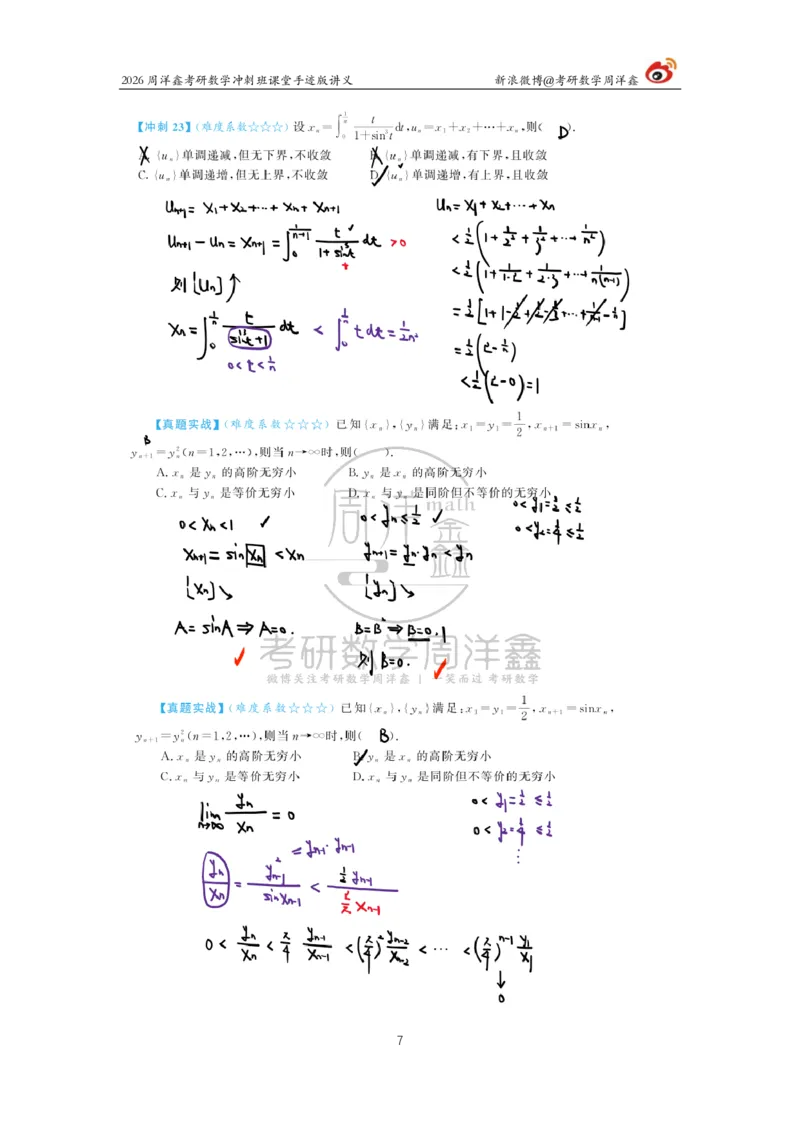 2026周洋鑫考研数学冲刺班课堂手迹版讲义 新浪微博@考研数学周洋鑫
【冲刺 23】(难度系数☆☆☆) 设 xₙ = ∫₀^{1/n} t/(1+sin³t) dt, uₙ = x₁+x₂+⋯+xₙ, 则( D ).
A. {uₙ}单调递减,但无下界,不收敛 B. {uₙ}单调递减,有下界,且收敛
C. {uₙ}单调递增,但无上界,不收敛 D. {uₙ}单调递增,有上界,且收敛
Uₙ₊₁ = X₁+X₂+⋯+Xₙ+Xₙ₊₁
Uₙ₊₁ − Uₙ = Xₙ₊₁ = ∫₀^{1/(n+1)} t/(1+sin³t) dt > 0
+
则{Uₙ}↑
Xₙ = ∫₀^{1/n} t/(sin³t+1) dt < ∫₀^{1/n} t dt = 1/2n²
0<t<1/n
Uₙ = X₁+X₂+⋯+Xₙ
< 1/2(1+1/2²+1/3²+⋯+1/n²)
< 1/2(1+1/1·2+1/2·3+⋯+1/n(n-1))
= 1/2[1+1−1/2+1/2−1/3+⋯+1/n-1−1/n]
= 1/2(2−1/n)
< 1/2(2−0)=1
【真题实战】(难度系数☆☆☆) 已知{xₙ},{yₙ}满足:x₁=y₁=1/2, xₙ₊₁=sinxₙ,
B
yₙ₊₁=yₙ²(n=1,2,⋯),则当n→∞时,则( ).
A. xₙ 是 yₙ 的高阶无穷小 B. yₙ 是 xₙ 的高阶无穷小
C. xₙ 与 yₙ 是等价无穷小 D. xₙ 与 yₙ 是同阶但不等价的无穷小
0<y₁=1/2≤1/2
0<y₂=1/4≤1/2
0<Xₙ<1 ✓ 0<yₙ≤1/2 ✓
Xₙ₊₁=sin Xₙ <Xₙ yₙ₊₁=yₙ·yₙ<yₙ
{Xₙ}↘ {yₙ}↘
A=sinA⇒A=0. B=B²⇒B=0,1
则B=0.
周洋鑫 math
考研数学周洋鑫
微博关注考研数学周洋鑫 | 一笑而过 考研数学
【真题实战】(难度系数☆☆☆) 已知{xₙ},{yₙ}满足:x₁=y₁=1/2, xₙ₊₁=sinxₙ,
yₙ₊₁=yₙ²(n=1,2,⋯),则当n→∞时,则( B ).
A. xₙ 是 yₙ 的高阶无穷小 B. yₙ 是 xₙ 的高阶无穷小
C. xₙ 与 yₙ 是等价无穷小 D. xₙ 与 yₙ 是同阶但不等价的无穷小
lim n→∞ yₙ/Xₙ = 0
0<y₁=1/2≤1/2
0<y₂=1/4≤1/2
⋮
=yₙ₋₁·yₙ₋₁
yₙ/Xₙ = y²ₙ₋₁/sinXₙ₋₁ < (1/2 yₙ₋₁)/(2/π Xₙ₋₁)
0< yₙ/Xₙ < π/4 yₙ₋₁/Xₙ₋₁ < (π/4)² yₙ₋₂/Xₙ₋₂ < ⋯ < (π/4)ⁿ⁻¹ y₁/X₁
↓
0
7